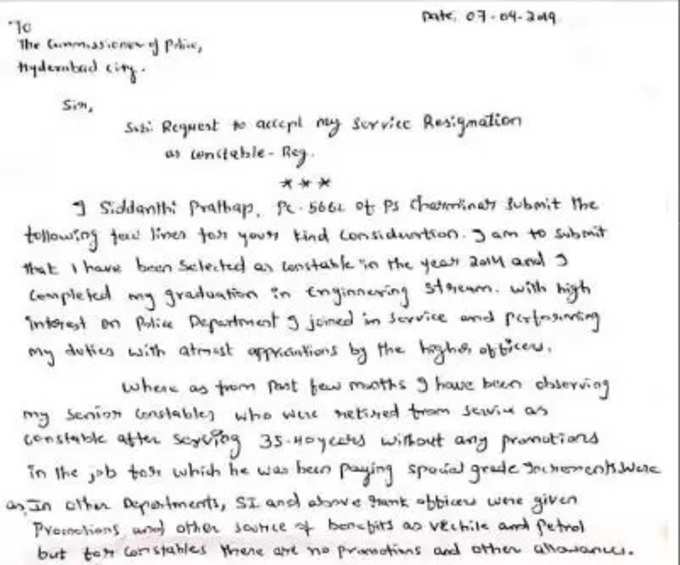 Date: 07-04-2019
To
The Commissioner of Police,
Hyderabad city.
Sir,
Sub: Request to accept my Service Resignation
as constable - Reg.
***
I Siddanthi Prathap, PC-5662 of PS Charminar Submit the
following few lines for your kind consideration. I am to submit
that I have been Selected as constable in the year 2014 and I
Completed my graduation in Enginnering Stream. with high
interest on Police Department I joined in service and performing
my duties with atmost appriciations by the higher officers.
Where as from Past few months I have been observing
my Senior Constables who were retired from service as
constable after serving 35-40 years without any promotions
in the job for which he was been paying special grade increments were
as, In other Departments, SI and above rank officers were given
Promotions, and other source of benefits as vechile and Petrol
but for constables there are no promotions and other allowances.